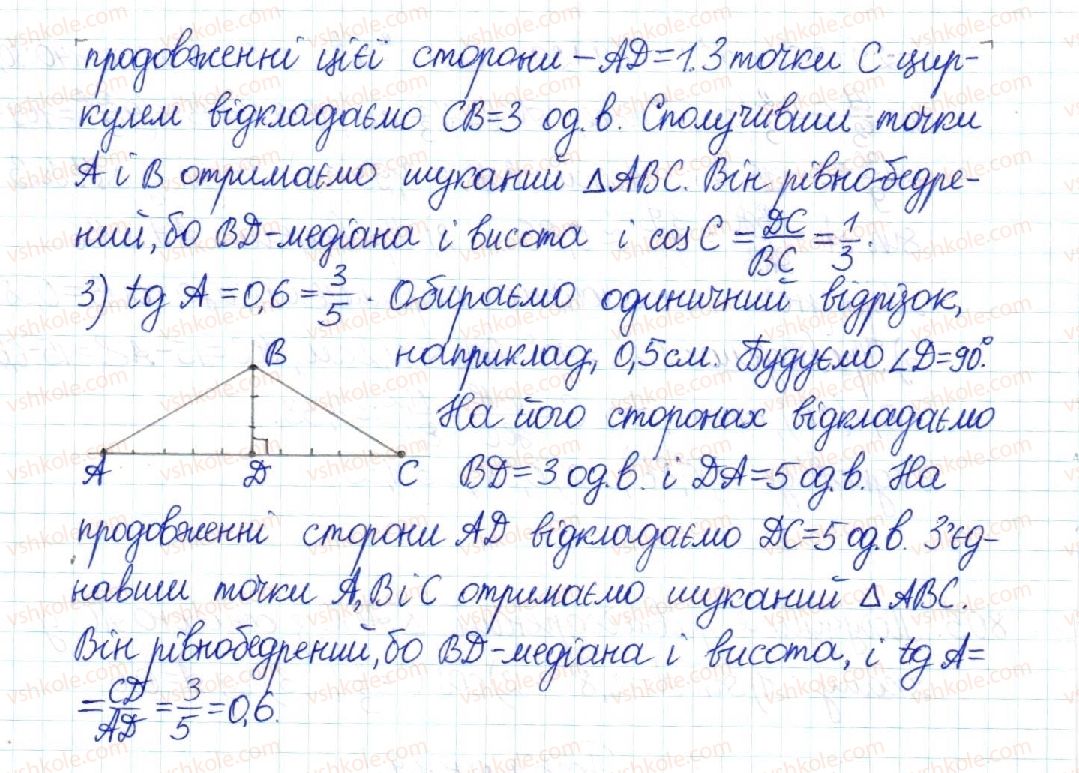 продовженні цієї сторони – AD=1. З точки C цир-
кулем відкладаємо CB=3 од.в. Сполучивши точки
A і B отримаємо шуканий △ABC. Він рівнобедре-
ний, бо BD-медіана і висота і cos C = DC/BC = 1/3.
3) tg A = 0,6 = 3/5. Обираємо одиничний відрізок,
наприклад, 0,5 см. Будуємо ∠D=90°.
На його сторонах відкладаємо
BD=3 од.в. і DA=5 од.в. На
продовженні сторони AD відкладаємо DC=5 од.в. З'єд-
навши точки A, B і C отримаємо шуканий △ABC.
Він рівнобедрений, бо BD-медіана і висота, і tg A=
= CD/AD = 3/5 = 0,6.
B
A
D
C
vshkole.com